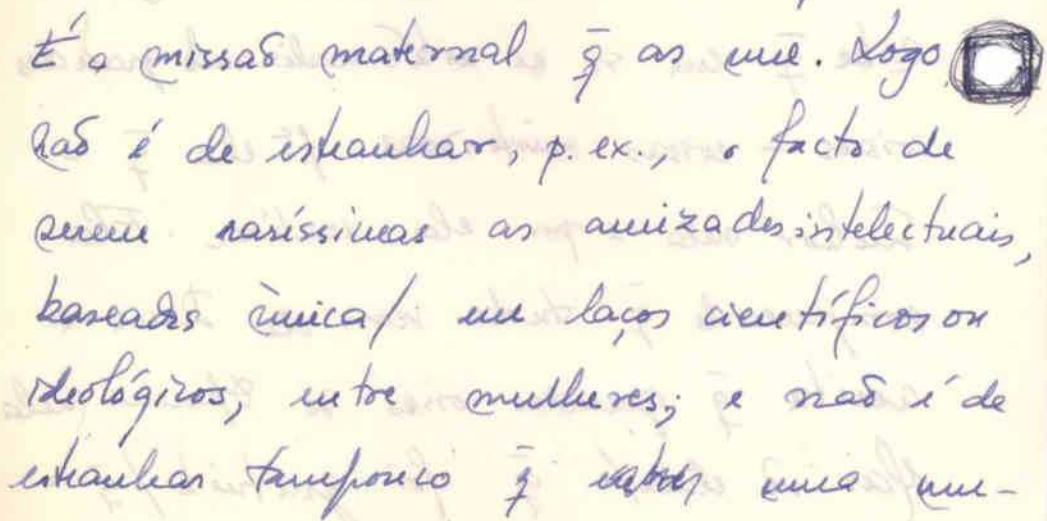 É a missão maternal q̄ as une. Logo
não é de estranhar, p. ex., o facto de
serem raríssimas as amizades intelectuais,
baseadas única/ em laços científicos ou
ideológicos, entre mulheres; e não é de
estranhar tampouco q̄ uma mu-